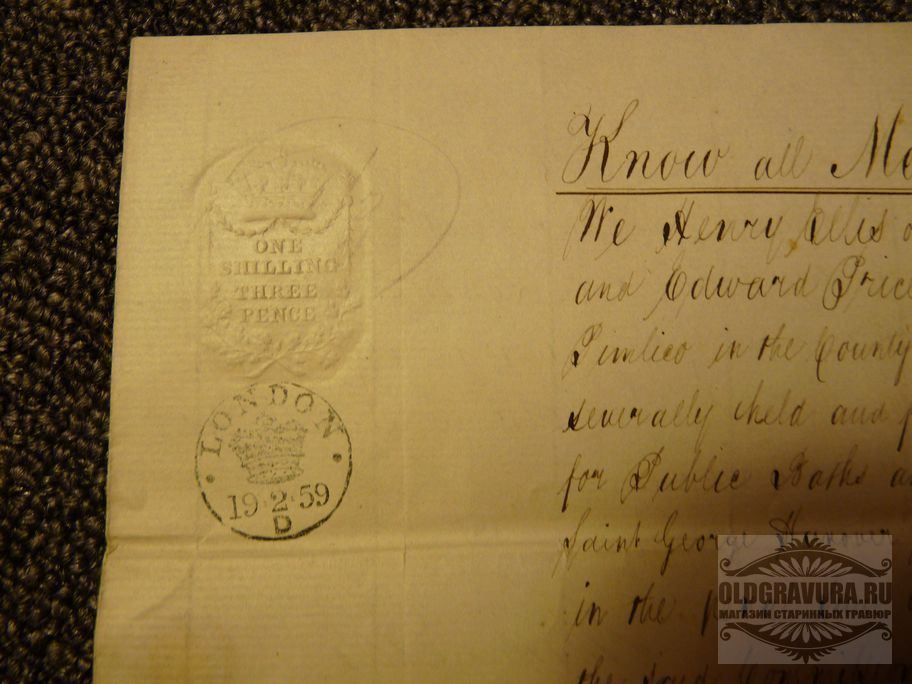 ONE
SHILLING
THREE
PENCE
LONDON
19·2·59
D
Know all Me
We Henry Ellis o
and Edward Price
Pimlico in the County
severally held and f
for Public Baths a
Saint George Hanover
in the
the said
OLDGRAVURA.RU
МАГАЗИН СТАРИННЫХ ГРАВЮР